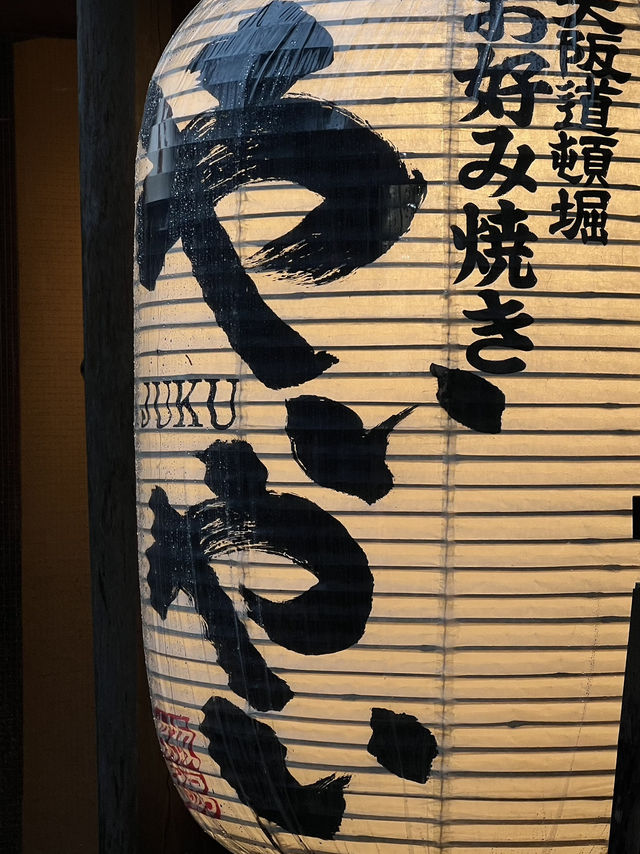 大阪道頓堀
お好み焼き
やいやい
JUKU